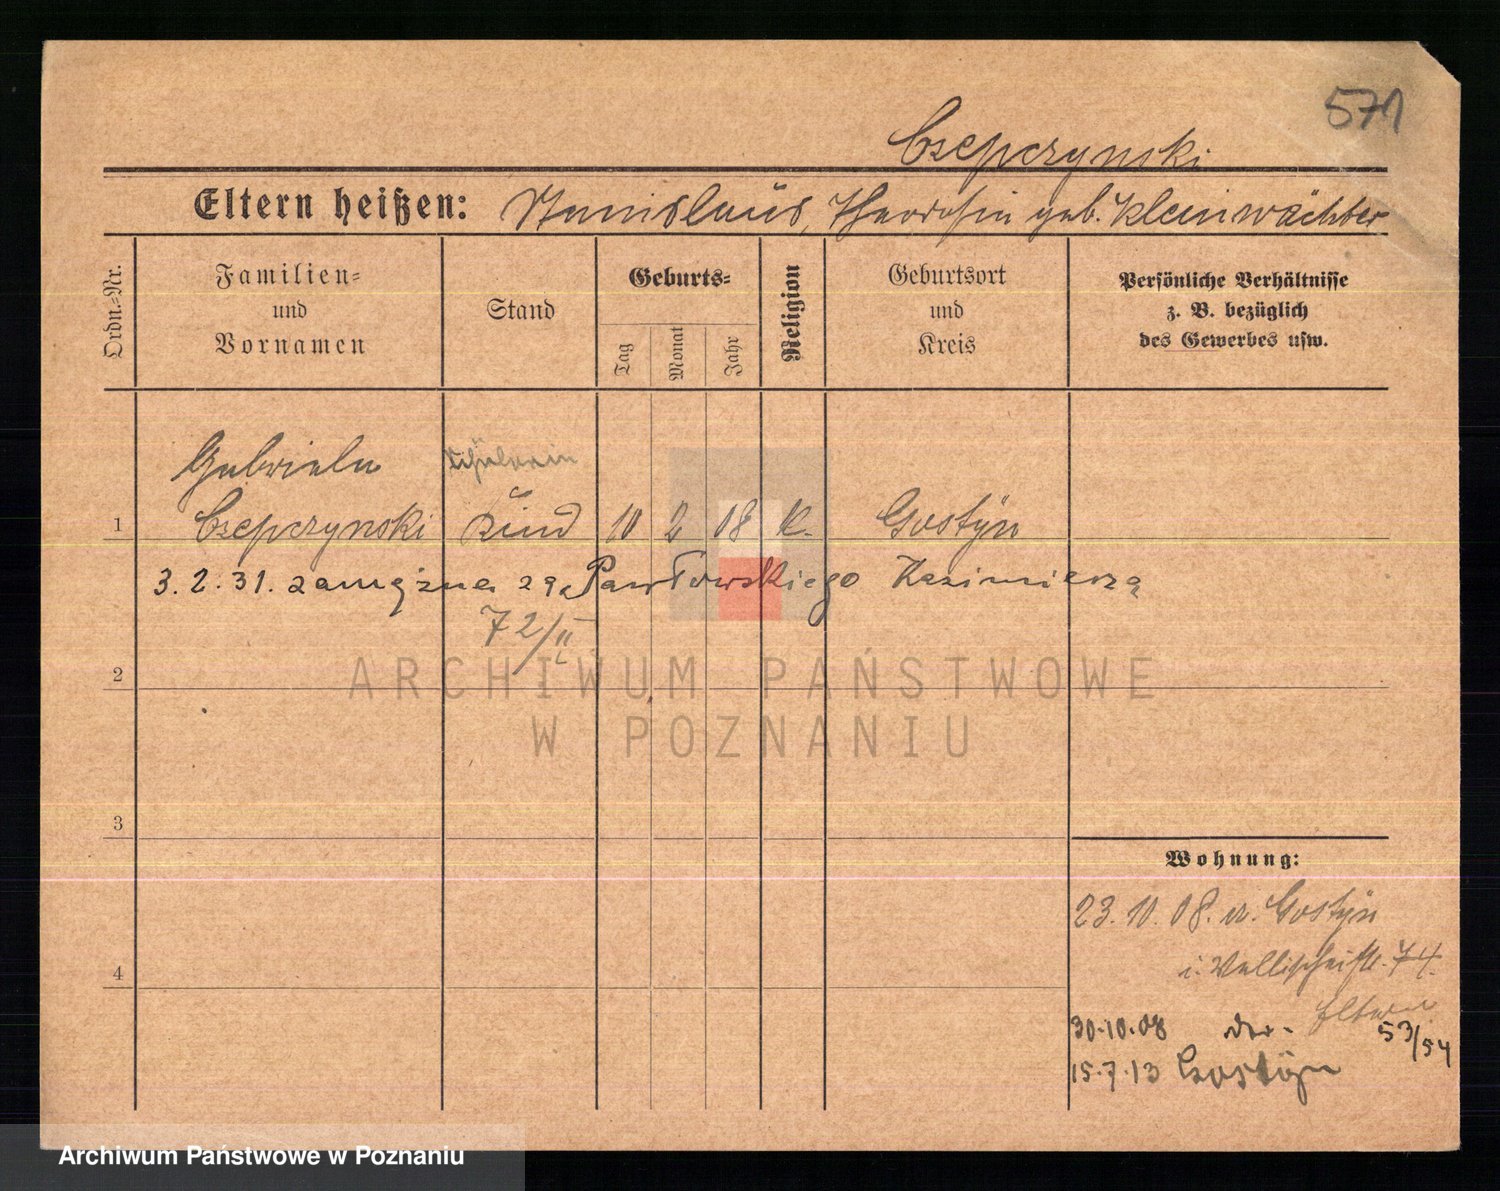 571
Czepczynski
Eltern heißen: Stanislaus, Theodosia geb. Kleinwächter
Ordn.-Nr.
Familien-
und
Vornamen
Stand
Geburts-
Tag
Monat
Jahr
Religion
Geburtsort
und
Kreis
Persönliche Verhältnisse
z. B. bezüglich
des Gewerbes usw.
Gabriela
Schülerin
1 Czepczynski Kind 10 2 08 k. Gostyn
3.2.31. zamężna za Pawłowskiego Kazimierza
72/II
2
3
4
Wohnung:
23.10.08. v. Gostyn
i. Wallischeistr. 74.
Eltern
30.10.08 der. 53/54
15.7.13 Gostyn
ARCHIWUM PAŃSTWOWE
W POZNANIU
Archiwum Państwowe w Poznaniu